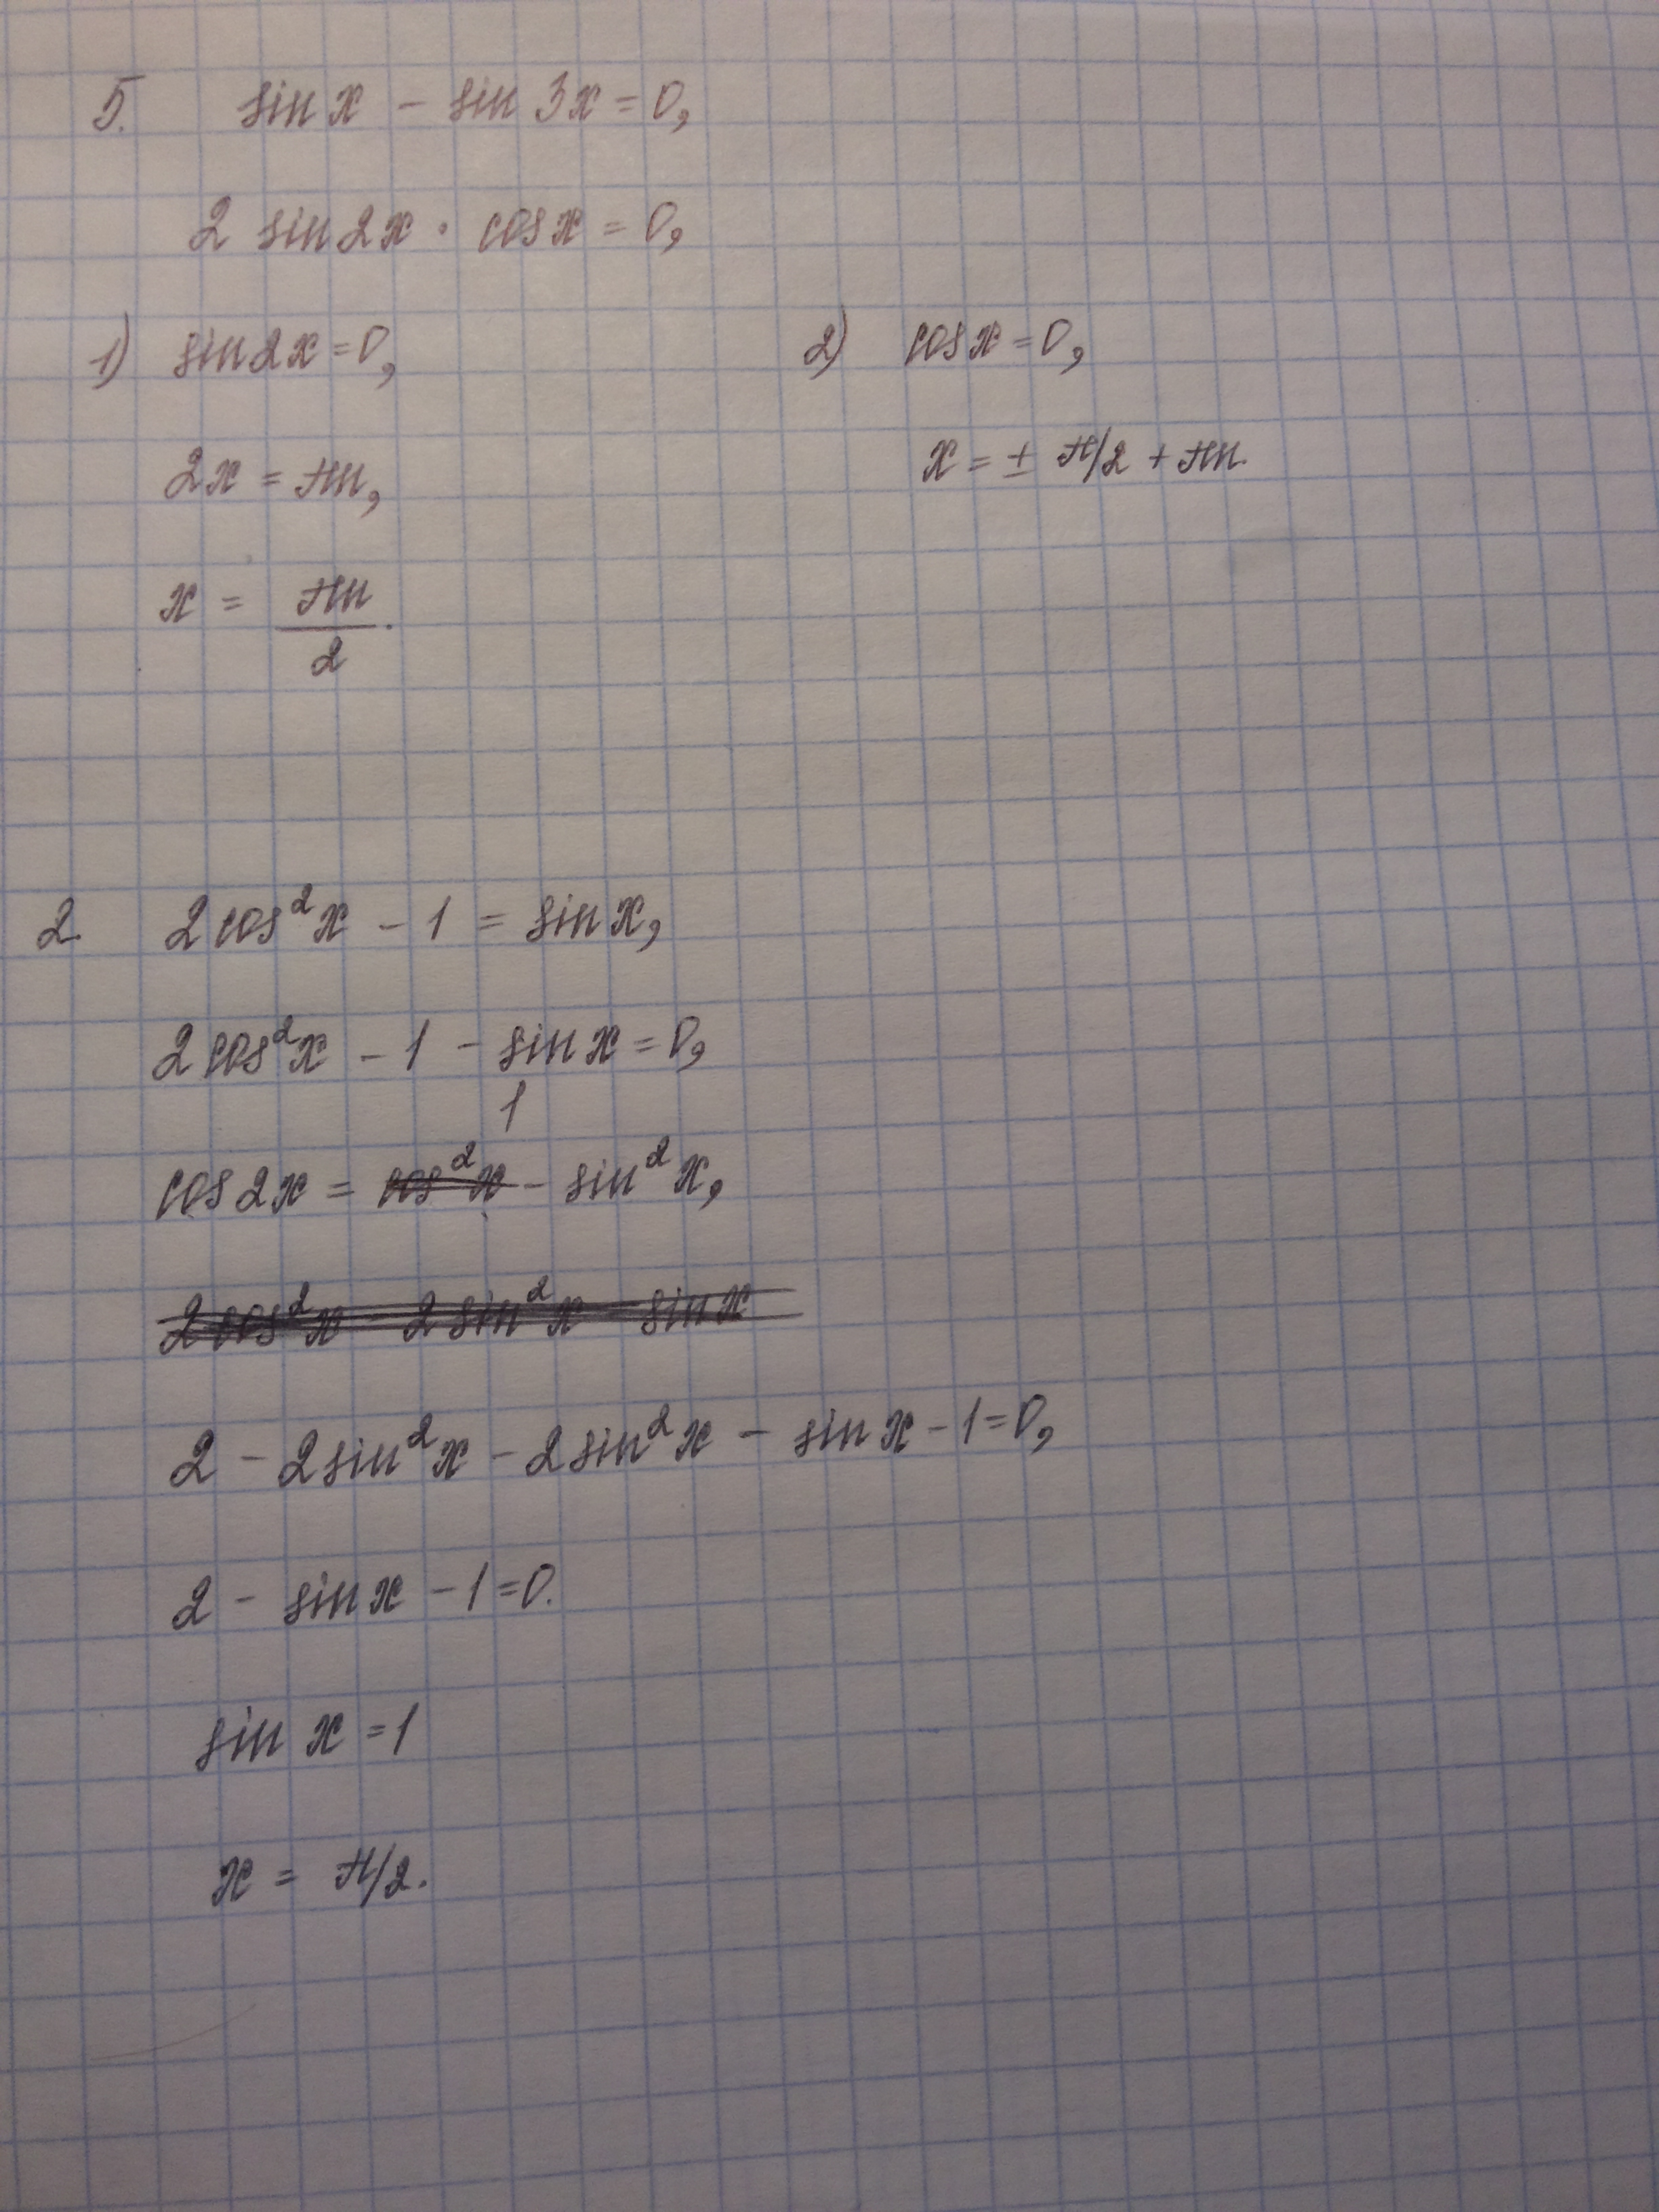 5. sin x - sin 3x = 0,
2 sin 2x · cos x = 0,
1) sin 2x = 0, 2) cos x = 0,
2x = πn, x = ± π/2 + πn.
x = πn/2.
2. 2 cos² x - 1 = sin x,
2 cos² x - 1 - sin x = 0,
1
cos 2x = cos² x - sin² x,
2 cos² x - 2 sin² x - sin x
2 - 2 sin² x - 2 sin² x - sin x - 1 = 0,
2 - sin x - 1 = 0.
sin x = 1
x = π/2.